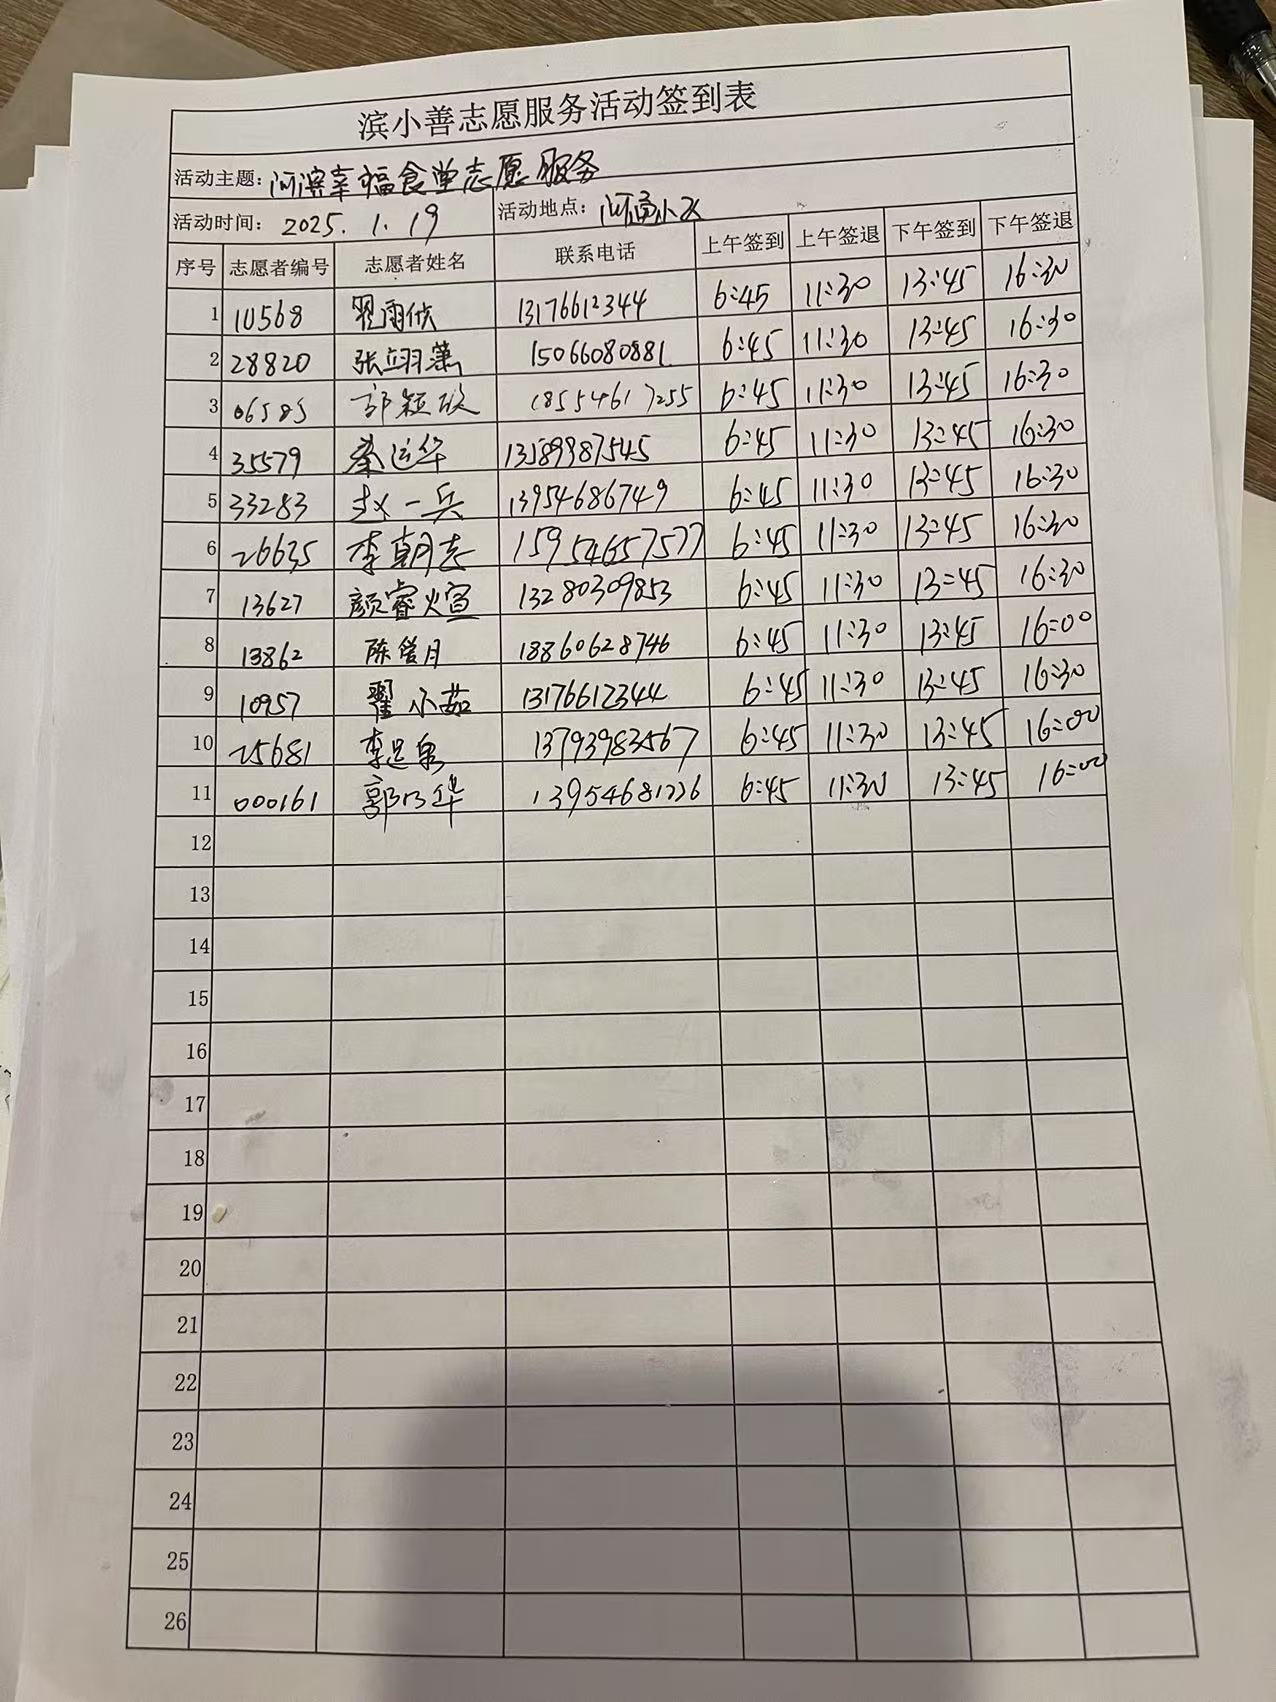 滨小善志愿服务活动签到表
活动主题：河滨幸福食堂志愿服务
活动时间： 2025.1.19 活动地点：河滨小区
序号 志愿者编号 志愿者姓名 联系电话 上午签到 上午签退 下午签到 下午签退
1 10568 翟雨 13176612344 6:45 11:30 13:45 16:30
2 28820 张翊 15066080881 6:45 11:30 13:45 16:30
3 06585 郭颖欣 18554617255 6:45 11:30 13:45 16:30
4 35579 秦运华 13589987545 6:45 11:30 13:45 16:30
5 33283 赵一兵 13954686749 6:45 11:30 13:45 16:30
6 26635 李朝志 15954657577 6:45 11:30 13:45 16:30
7 13627 颜睿煊 13280309853 6:45 11:30 13:45 16:30
8 13862 陈 月 18860628746 6:45 11:30 13:45 16:00
9 10957 翟小茹 13176612344 6:45 11:30 13:45 16:30
10 25681 李 泉 13793983567 6:45 11:30 13:45 16:00
11 000161 郭乃华 13954681226 6:45 11:30 13:45 16:00
12
13
14
15
16
17
18
19
20
21
22
23
24
25
26